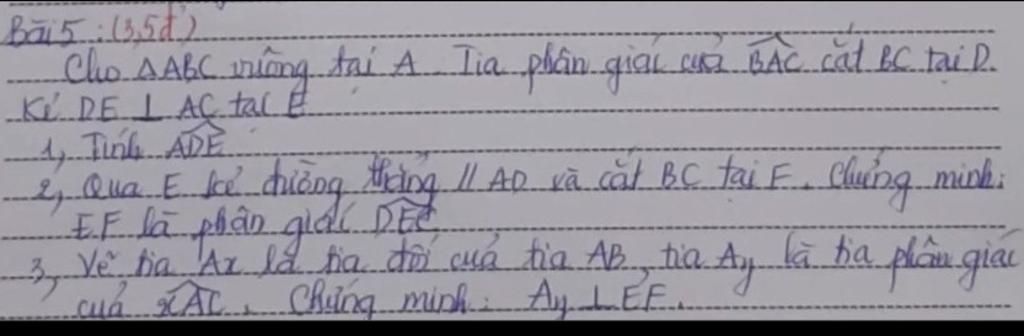 Bài 5 : (3,5đ)
Cho ΔABC vuông tại A. Tia phân giác của BAC cắt BC tại D.
Kẻ DE ⊥ AC tại E
1, Tính ADE
2, Qua E kẻ đường thẳng // AD và cắt BC tại F. Chứng minh:
EF là phân giác DEC
3, Vẽ tia Ax là tia đối của tia AB, tia Ay là tia phân giác
của xAC. Chứng minh: Ay ⊥ EF.